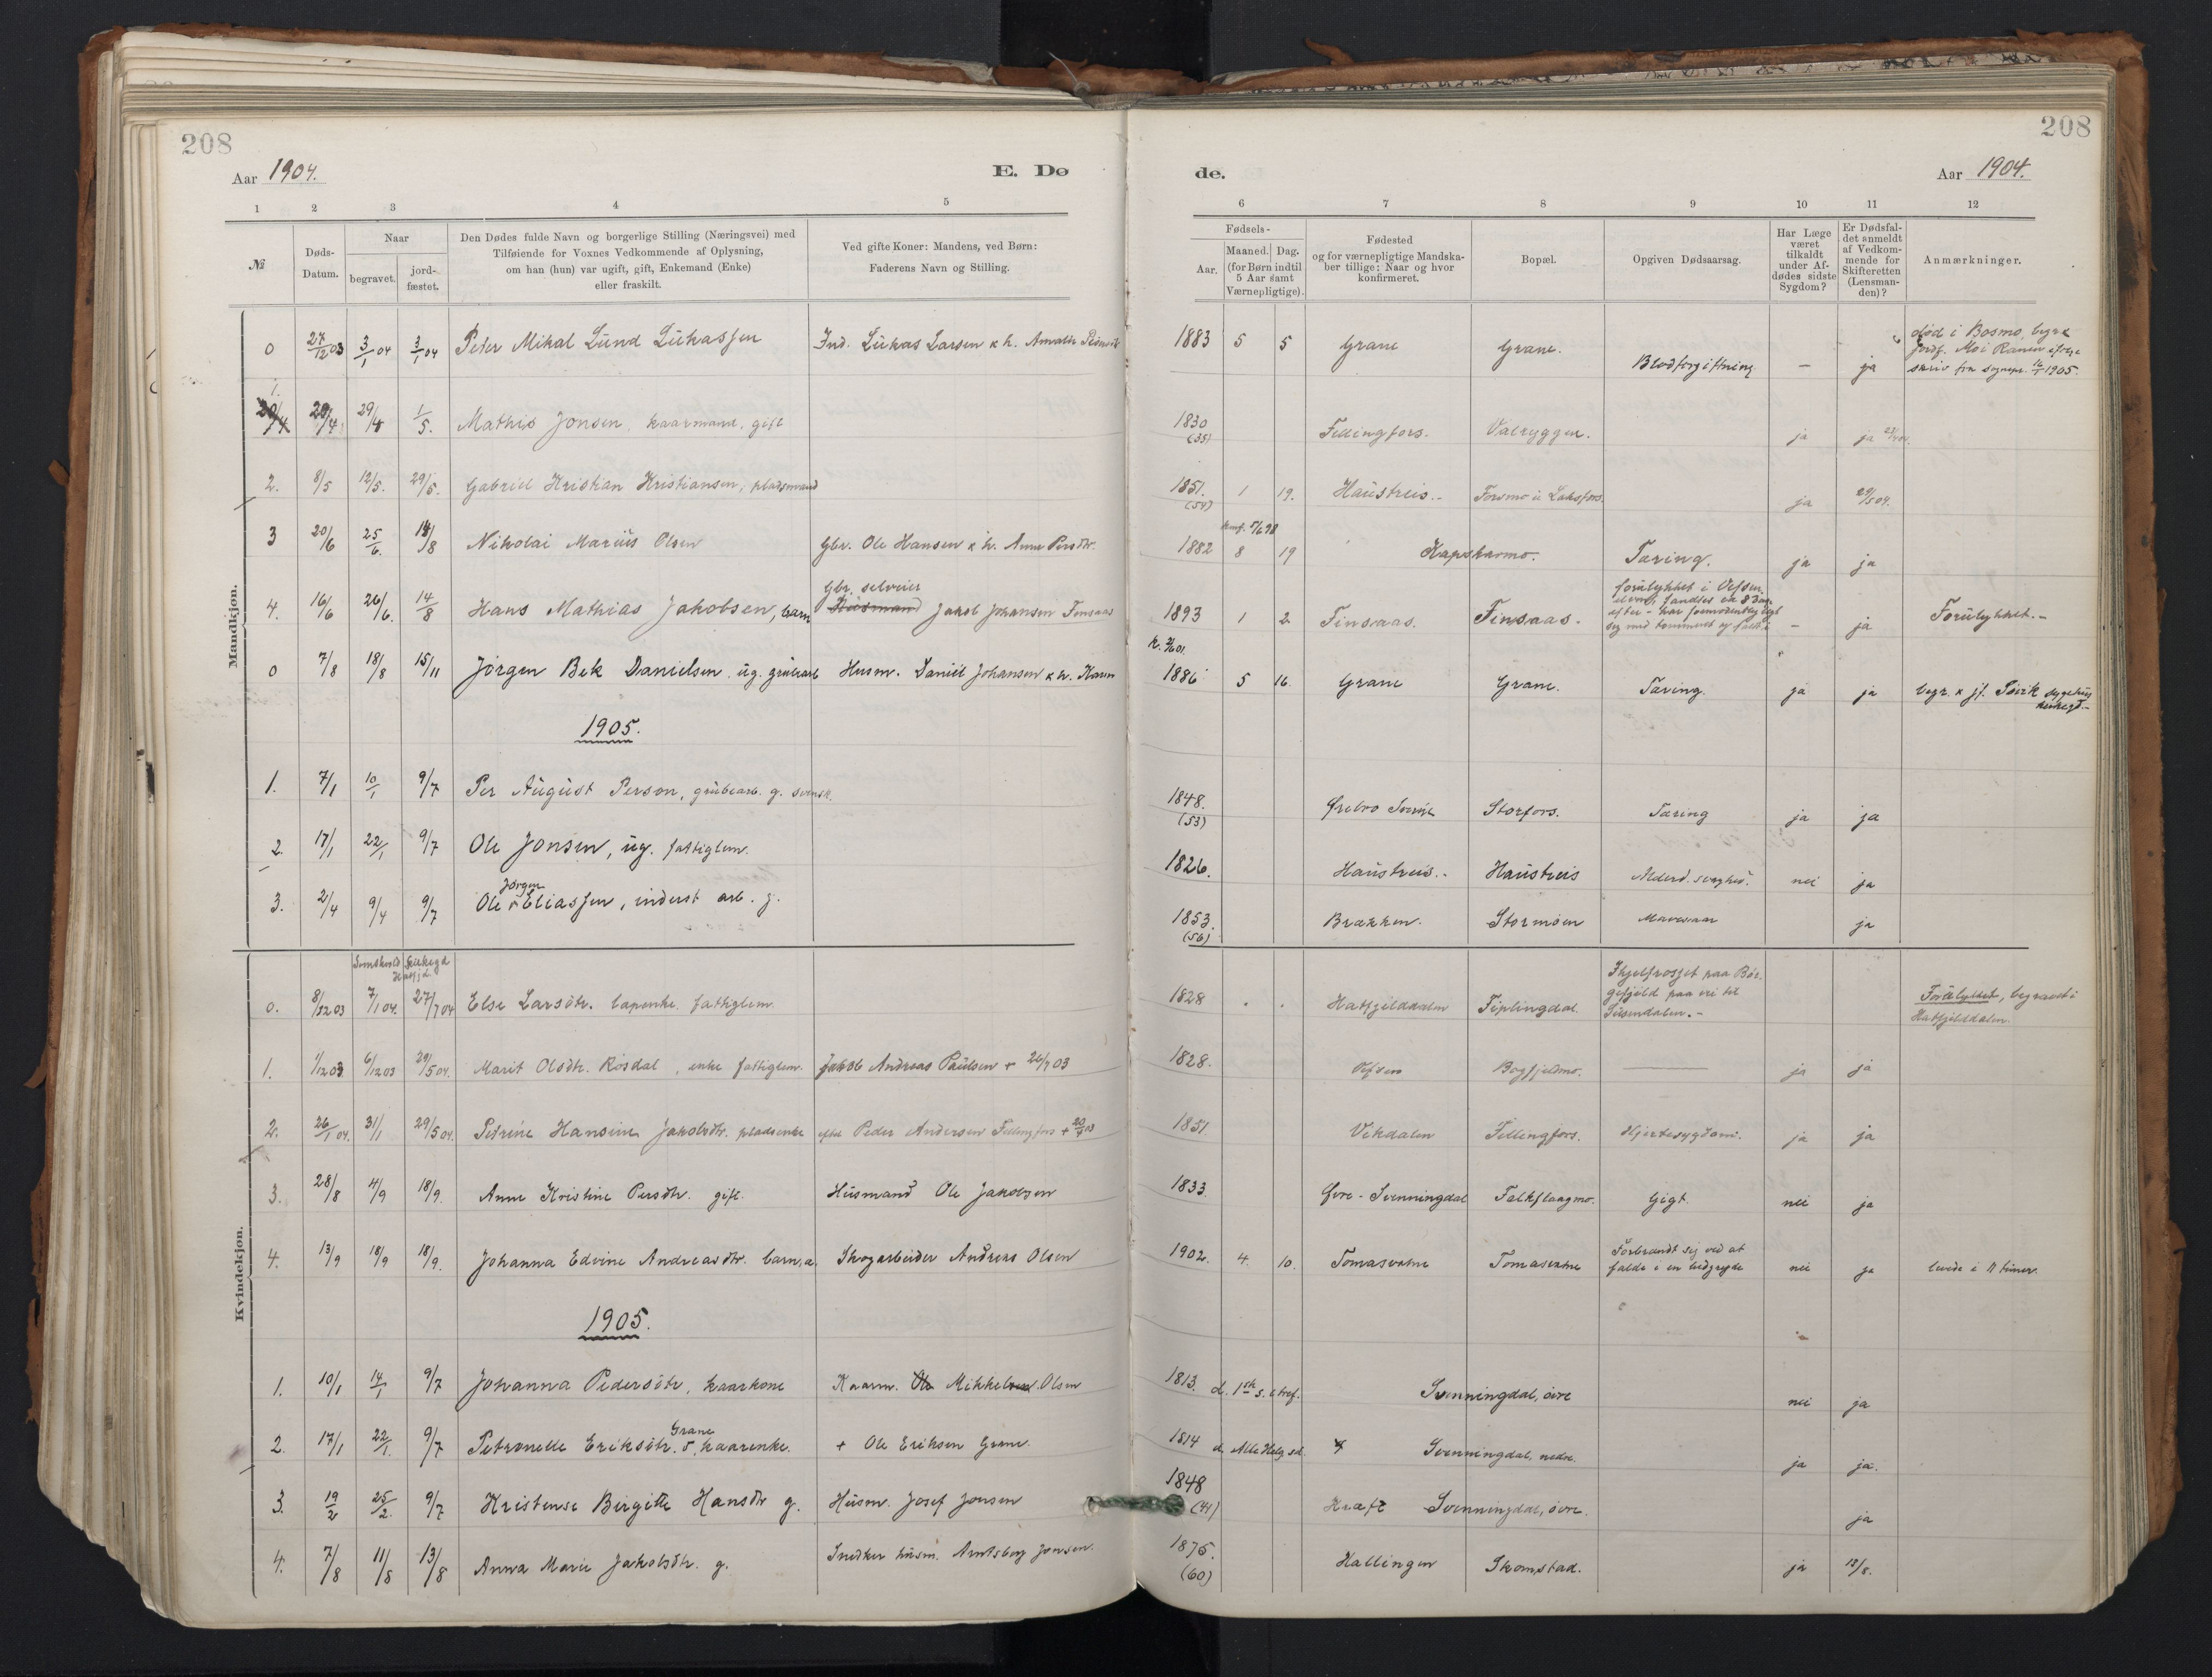 208
208
Aar 1904.
E. Dø
de.
Aar 1904.
1 2 3 4 5 6 7 8 9 10 11 12
№
Døds-Datum.
Naar
begravet.
jord-fæstet.
Den Dødes fulde Navn og borgerlige Stilling (Næringsvei) med
Tilføiende for Voxnes Vedkommende af Oplysning,
om han (hun) var ugift, gift, Enkemand (Enke)
eller fraskilt.
Ved gifte Koner: Mandens, ved Børn:
Faderens Navn og Stilling.
Fødsels-
Aar.
Maaned. Dag.
(for Børn indtil
5 Aar samt
Værnepligtige).
Fødested
og for værnepligtige Mandska-
ber tillige: Naar og hvor
konfirmeret.
Bopæl.
Opgiven Dødsaarsag.
Har Læge
været
tilkaldt
under Af-
dødes sidste
Sygdom?
Er Dødsfal-
det anmeldt
af Vedkom-
mende for
Skifteretten
(Lensman-
den)?
Anmærkninger.
Mandkjøn.
0 27/12 03 3/1 04 3/1 04 Peter Mikal Lund Lukassen Ind. Lukas Larsen & h. Amalie 1883 5 5 Grane Grane. Blodforgiftning — ja død i Bosmo, begr.
jordf. Mo i Ranen ifølge
skriv fra sognepr. 16/1 1905.
1. 20/4 29/4 1/5. Mathis Jonsen, kaarmand, gift 1830 (35) Fellingfors. Valryggen. ja ja 23/4 04.
2. 8/5 12/5. 29/5. Gabriel Kristian Kristiansen, pladsmand 1851. (54) 1 19. Haustreis.- Formo i Laksfors. ja 29/5 04.
3 20/6 25/6. 14/8 Nikolai Marius Olsen Gbr. Ole Hansen & h. Anne Persdtr. 1882 8 19 Kapskarmo. Tæring. ja ja
4. 16/6 26/6. 14/8 Hans Mathias Jakobsen, barn Gbr. selveier
Husmand Jakob Johansen Finsaas 1893 1 2 Finsaas. Finsaas. forulykket i Vefsen
elven, fandtes ca 8 Dage
efter - har formodentlig
sig med tømmeret og faldt i — ja Forulykket.-
0 7/8 18/8 15/11 Jørgen Bek Danielsen ug. grubearb Husm. Daniel Johansen & h. Karen 1886 5 16 Grane Grane. Tæring. ja ja begr. & jf. Søvik sygehus
kirkegd.-
1905.
1. 7/1 10/1 9/7 Per August Person, grubearb. g. svensk. 1848. (53) Ørebro Sverige Storfors. Tæring ja ja
2. 17/1 22/1 9/7 Ole Jonsen, ug. fattiglem. 1826. Haustreis.- Haustreis Alderd. svaghed. nei ja
3. 2/4 9/4 9/7 Ole Jørgen Eliassen, inderst arb. g. 1853. (56) Brækken. Stormoen Mavesaar ja
Kvindekjøn.
0. 8/12 03 7/1 04. 27/7 04 Else Larsdtr. lapenke fattiglem 1828 Hatfjelddalen Fiplingdal. Ihjelfrosset paa Bør-
gefjeld paa vei til
Susendalen.- Forulykket, begravet i
Hatfjelddalen.
1. 1/12 03 6/12 03 29/5 04. Marit Olsdtr. Rosdal, enke fattiglem. Jakob Andreas Paulsen + 26/7 03 1828. Vefsen Bogfjeldmo. ja ja
2. 26/1 04. 31/1 29/5 04. Petrine Hansine Jakobsdtr. pladsenke efter Peder Andersen Fellingfors + 1851. Vekdalen Fellingfors. Hjertesygdom. ja ja
3. 28/8 4/9 18/9. Anne Kristine Persdtr. gift. Husmand Ole Jakobsen 1833. Øvre-Svenningdal Falkflaagmo. Gigt. nei ja
4. 13/9 18/9 18/9. Johanna Edvine Andreasdtr. barn, a. Skogarbeider Andreas Olsen 1902. 4. 10. Tomasvatne Tomasvatne Forbrændt sig ved at
falde i en nei ja levede i 11 timer.
1905.
1. 10/1 14/1 9/7 Johanna Pedersdtr, kaarkone Kaarm. Ole Mikkel Olsen 1813. d. 1ste s. e. tref. Svenningdal, øvre nei ja
2. 17/1 22/1. 9/7 Petronelle Eriksdtr. Grane, kaarenke. + Ole Eriksen Grane. 1814 d. Alle Helg sd. Svenningdal, nedre. ja ja.
3. 19/2 25/2. 9/7 Kristense Birgitte Hansdtr g. Husm. Josef Jonsen 1848 (41) Kræft Svenningdal, øvre. ja
4. 7/8 11/8 13/8 Anna Marie Jakobsdtr. g. Snedker husm. Arntsberg Jonsen. 1875. (60) Hallingen Skomstad. ja 13/8.